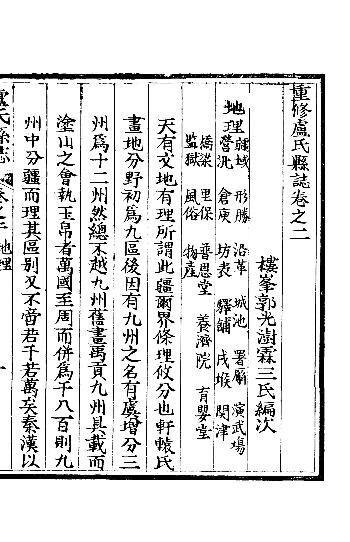 重修盧氏縣誌卷之二
樓峯郭光澍霖三氏編次
地理
疆域　形勝　沿革　城池　署廨　演武場
營汛　倉庾　坊表　驛鋪　戍堠　關津
橋梁　里保　普恩堂　養濟院　育嬰堂
監獄　風俗　物產
天有文地有理所謂此疆爾界條理攸分也軒轅氏
畫地分野初爲九區後因有九州之名有虞增分三
州爲十二州然總不越九州舊畫禹貢九州具載而
塗山之會執玉帛者萬國至周而併爲千八百則九
州中分疆而理其區别又不啻若千若萬矣秦漢以
盧氏縣志　卷之二　地理　一